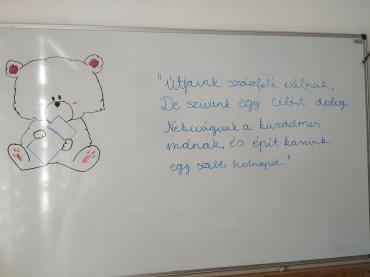 "Útjaink százfelé válnak,
De szívünk egy célért dobog,
Nekivágunk a küzdelmes
mának, és épít karunk
egy szebb holnapot."